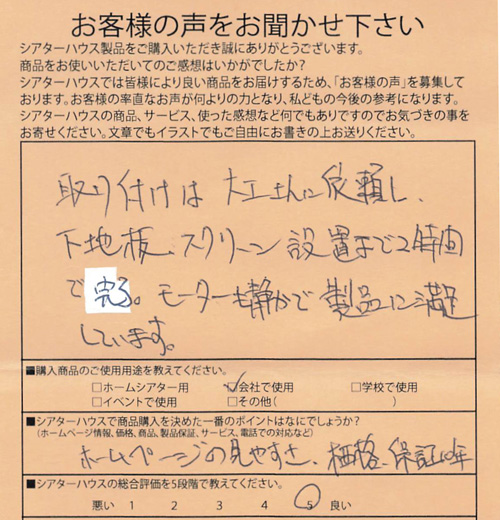 お客様の声をお聞かせ下さい
シアターハウス製品をご購入いただき誠にありがとうございます。
商品をお使いいただいてのご感想はいかがでしたか?
シアターハウスでは皆様により良い商品をお届けするため、「お客様の声」を募集して
おります。お客様の率直なお声が何よりの力となり、私どもの今後の参考になります。
シアターハウスの商品、サービス、使った感想など何でもありですのでお気づきの事を
お寄せください。文章でもイラストでもご自由にお書きの上お送りください。
取り付けは大工さんに依頼し、
下地板、スクリーン設置まで2時間
で完了。モーターも静かで製品に満足
しています。
■購入商品のご使用用途を教えてください。
□ホームシアター用 ☑会社で使用 □学校で使用
□イベントで使用 □その他( )
■シアターハウスで商品購入を決めた一番のポイントはなにでしょうか?
(ホームページ情報、価格、商品、製品保証、サービス、電話での対応など)
ホームページの見やすさ、価格、保証10年
■シアターハウスの総合評価を5段階で教えてください。
悪い 1 2 3 4 5 良い